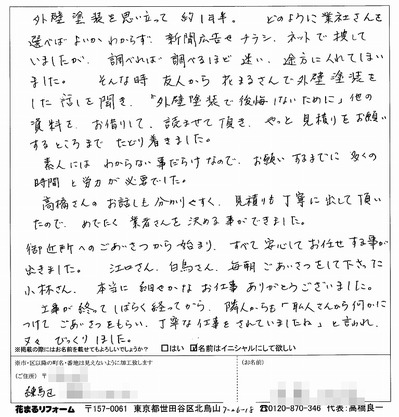 外壁塗装を思い立って 約1年半。 どのように業社さんを
選べばよいかわからず、新聞広告やチラシ、ネットで捜して
いましたが、調べれば調べるほど迷い、途方に入れてしまい
ました。 そんな時 友人から 花まるさんで外壁塗装を
した話しを聞き、「外壁塗装で後悔しないために」他の
資料を、お借りして、読ませて頂き、やっと見積りをお願い
するところまで たどり着きました。
素人には わからない事だらけなので、お願いするまでに 多くの
時間と労力が必要でした。
高橋さんのお話しも分かりやすく、見積りも丁寧に出して頂い
たので、めでたく 業者さんを 決める事ができました。
御近所へのごあいさつから始まり、すべて安心してお任せする事が
出来ました。 江口さん、白鳥さん、毎朝ごあいさつをして下さった
小林さん、本当に 細やかな お仕事 ありがとうございました。
工事が終ってしばらく経ってから、隣人からも「私人さんから何かに
つけて ごあいさつをもらい、丁寧な仕事をされていましたね」と言われ、
又々 びっくりしました。
※掲載の際にはお名前を載せてもよろしいでしょうか? □はい ☑名前はイニシャルにして欲しい
※市・区以降の町名・番地は見えないように加工致します
(ご住所) 〒
(お名前)
練馬区
花まるリフォーム 〒157-0061 東京都世田谷区北烏山7-26-18 ☎0120-870-346 代表:高橋良一